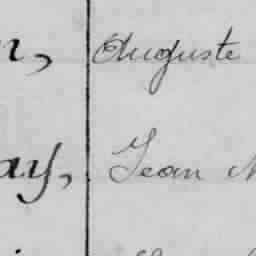 Auguste
ay, Jean